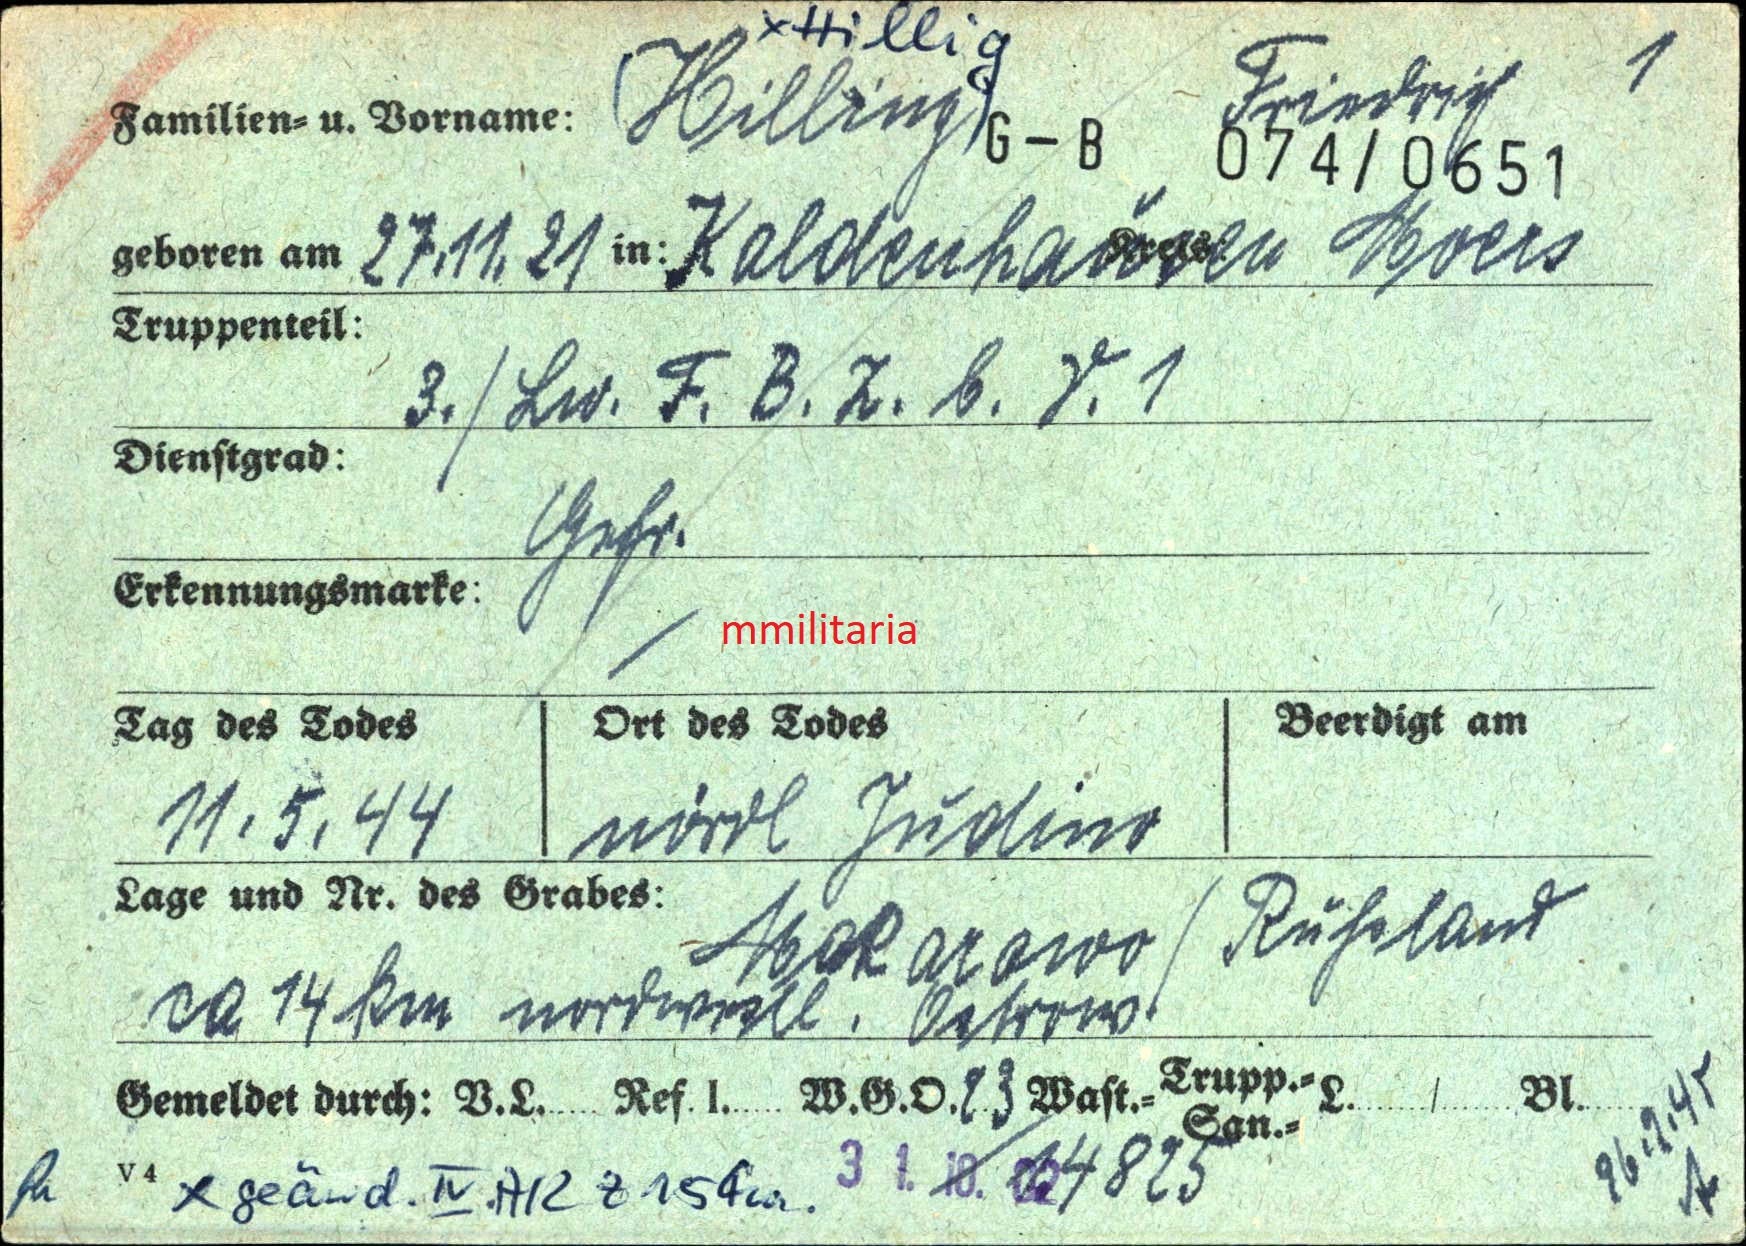 x Hillig
Familien= u. Vorname: (Hilling) Friedrich 1
G – B 074/0651
geboren am 27.11.21 in: Kaldenhausen Kreis Moers
Truppenteil:
3./Lw. F. B. Z. b. V. 1
Dienstgrad:
Gefr.
Erkennungsmarke:
/
mmilitaria
Tag des Todes Ort des Todes Beerdigt am
11.5.44 nördl Judino
Lage und Nr. des Grabes:
Makarowo / Rußland
ca 14 km nordwestl. Ostrow.
Gemeldet durch: V.L...... Ref. I...... W.G.O. 23 Wast.= Trupp.= San.= L......../........Bl.......
14825
26.2.45
V 4 x geänd. IV AK Z 31.10.